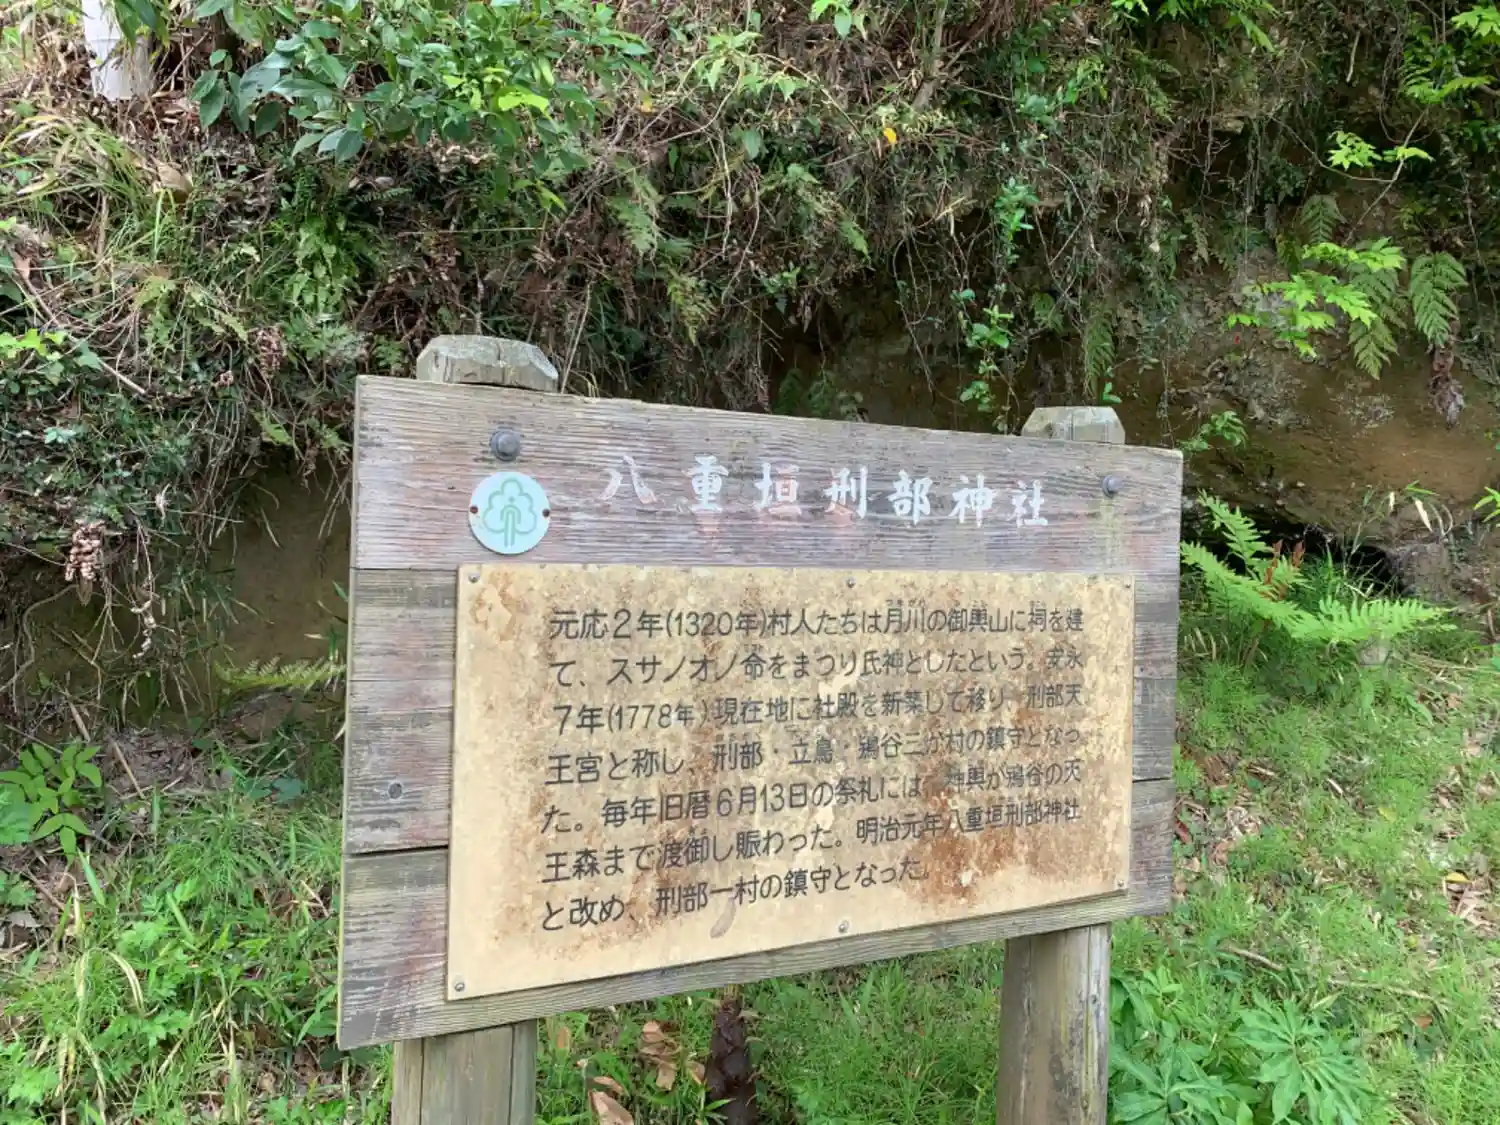 八重垣刑部神社
元応2年(1320年)村人たちは月川の御輿山に祠を建
て、スサノオノ命をまつり氏神としたという。安永
7年(1778年)現在地に社殿を新築して移り、刑部天
王宮と称し、刑部・立鳥・鴇谷三か村の鎮守となっ
た。毎年旧暦6月13日の祭礼には、神輿が鴇谷の天
王森まで渡御し賑わった。明治元年八重垣刑部神社
と改め、刑部一村の鎮守となった。